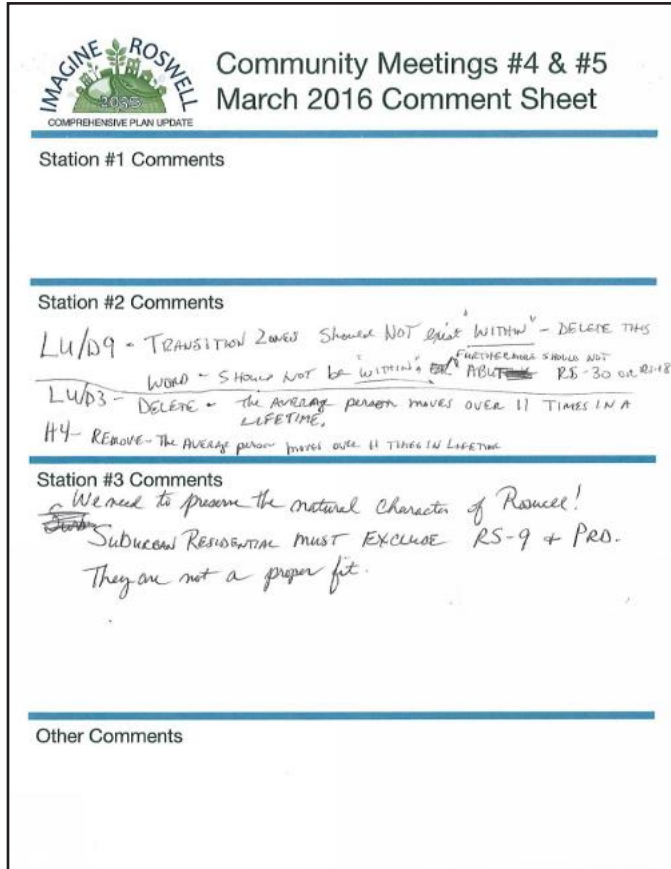 IMAGINE ROSWELL
2035
COMPREHENSIVE PLAN UPDATE
Community Meetings #4 & #5
March 2016 Comment Sheet
Station #1 Comments
Station #2 Comments
LU/D9 - TRANSITION ZONES Should NOT exist "WITHIN" - DELETE THIS
WORD - SHOULD NOT be "WITHIN" FURTHERMORE SHOULD NOT ABUT RS-30 OR RS-18
LU/D3 - DELETE - The AVERAGE person MOVES OVER 11 TIMES IN A
LIFETIME.
H4 - REMOVE - The AVERAGE person moves over 11 TIMES IN LIFETIME
Station #3 Comments
We need to preserve the natural character of Roswell!
SUBURBAN RESIDENTIAL MUST EXCLUDE RS-9 + PRD.
They are not a proper fit.
Other Comments